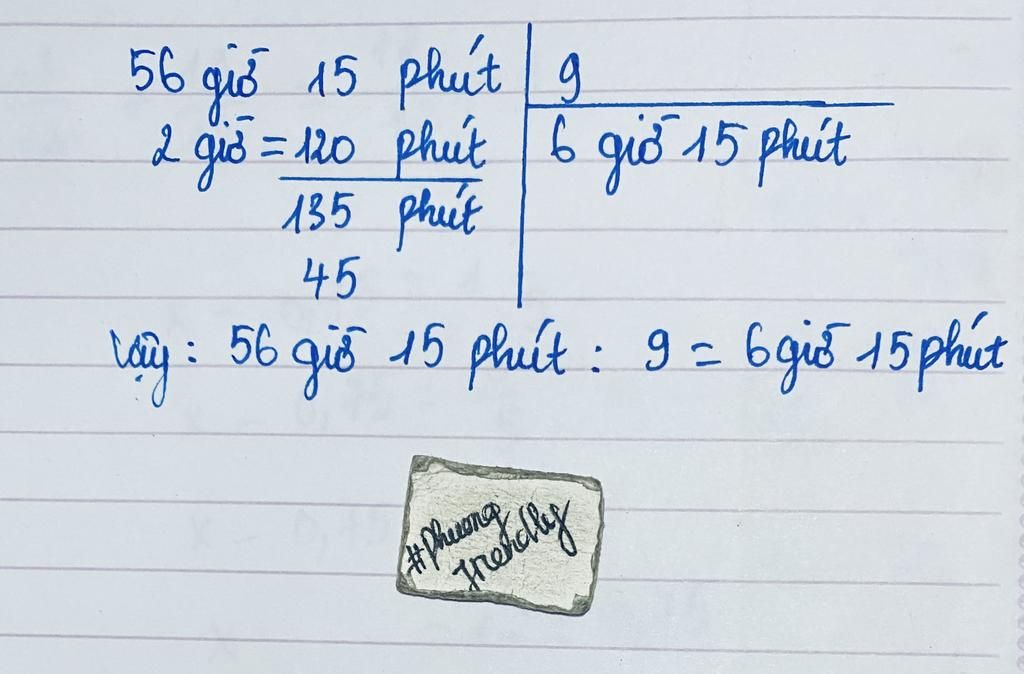 56 giờ 15 phút 9
2 giờ = 120 phút 6 giờ 15 phút
135 phút
45
Vậy : 56 giờ 15 phút : 9 = 6 giờ 15 phút
#Phuong
Friendly